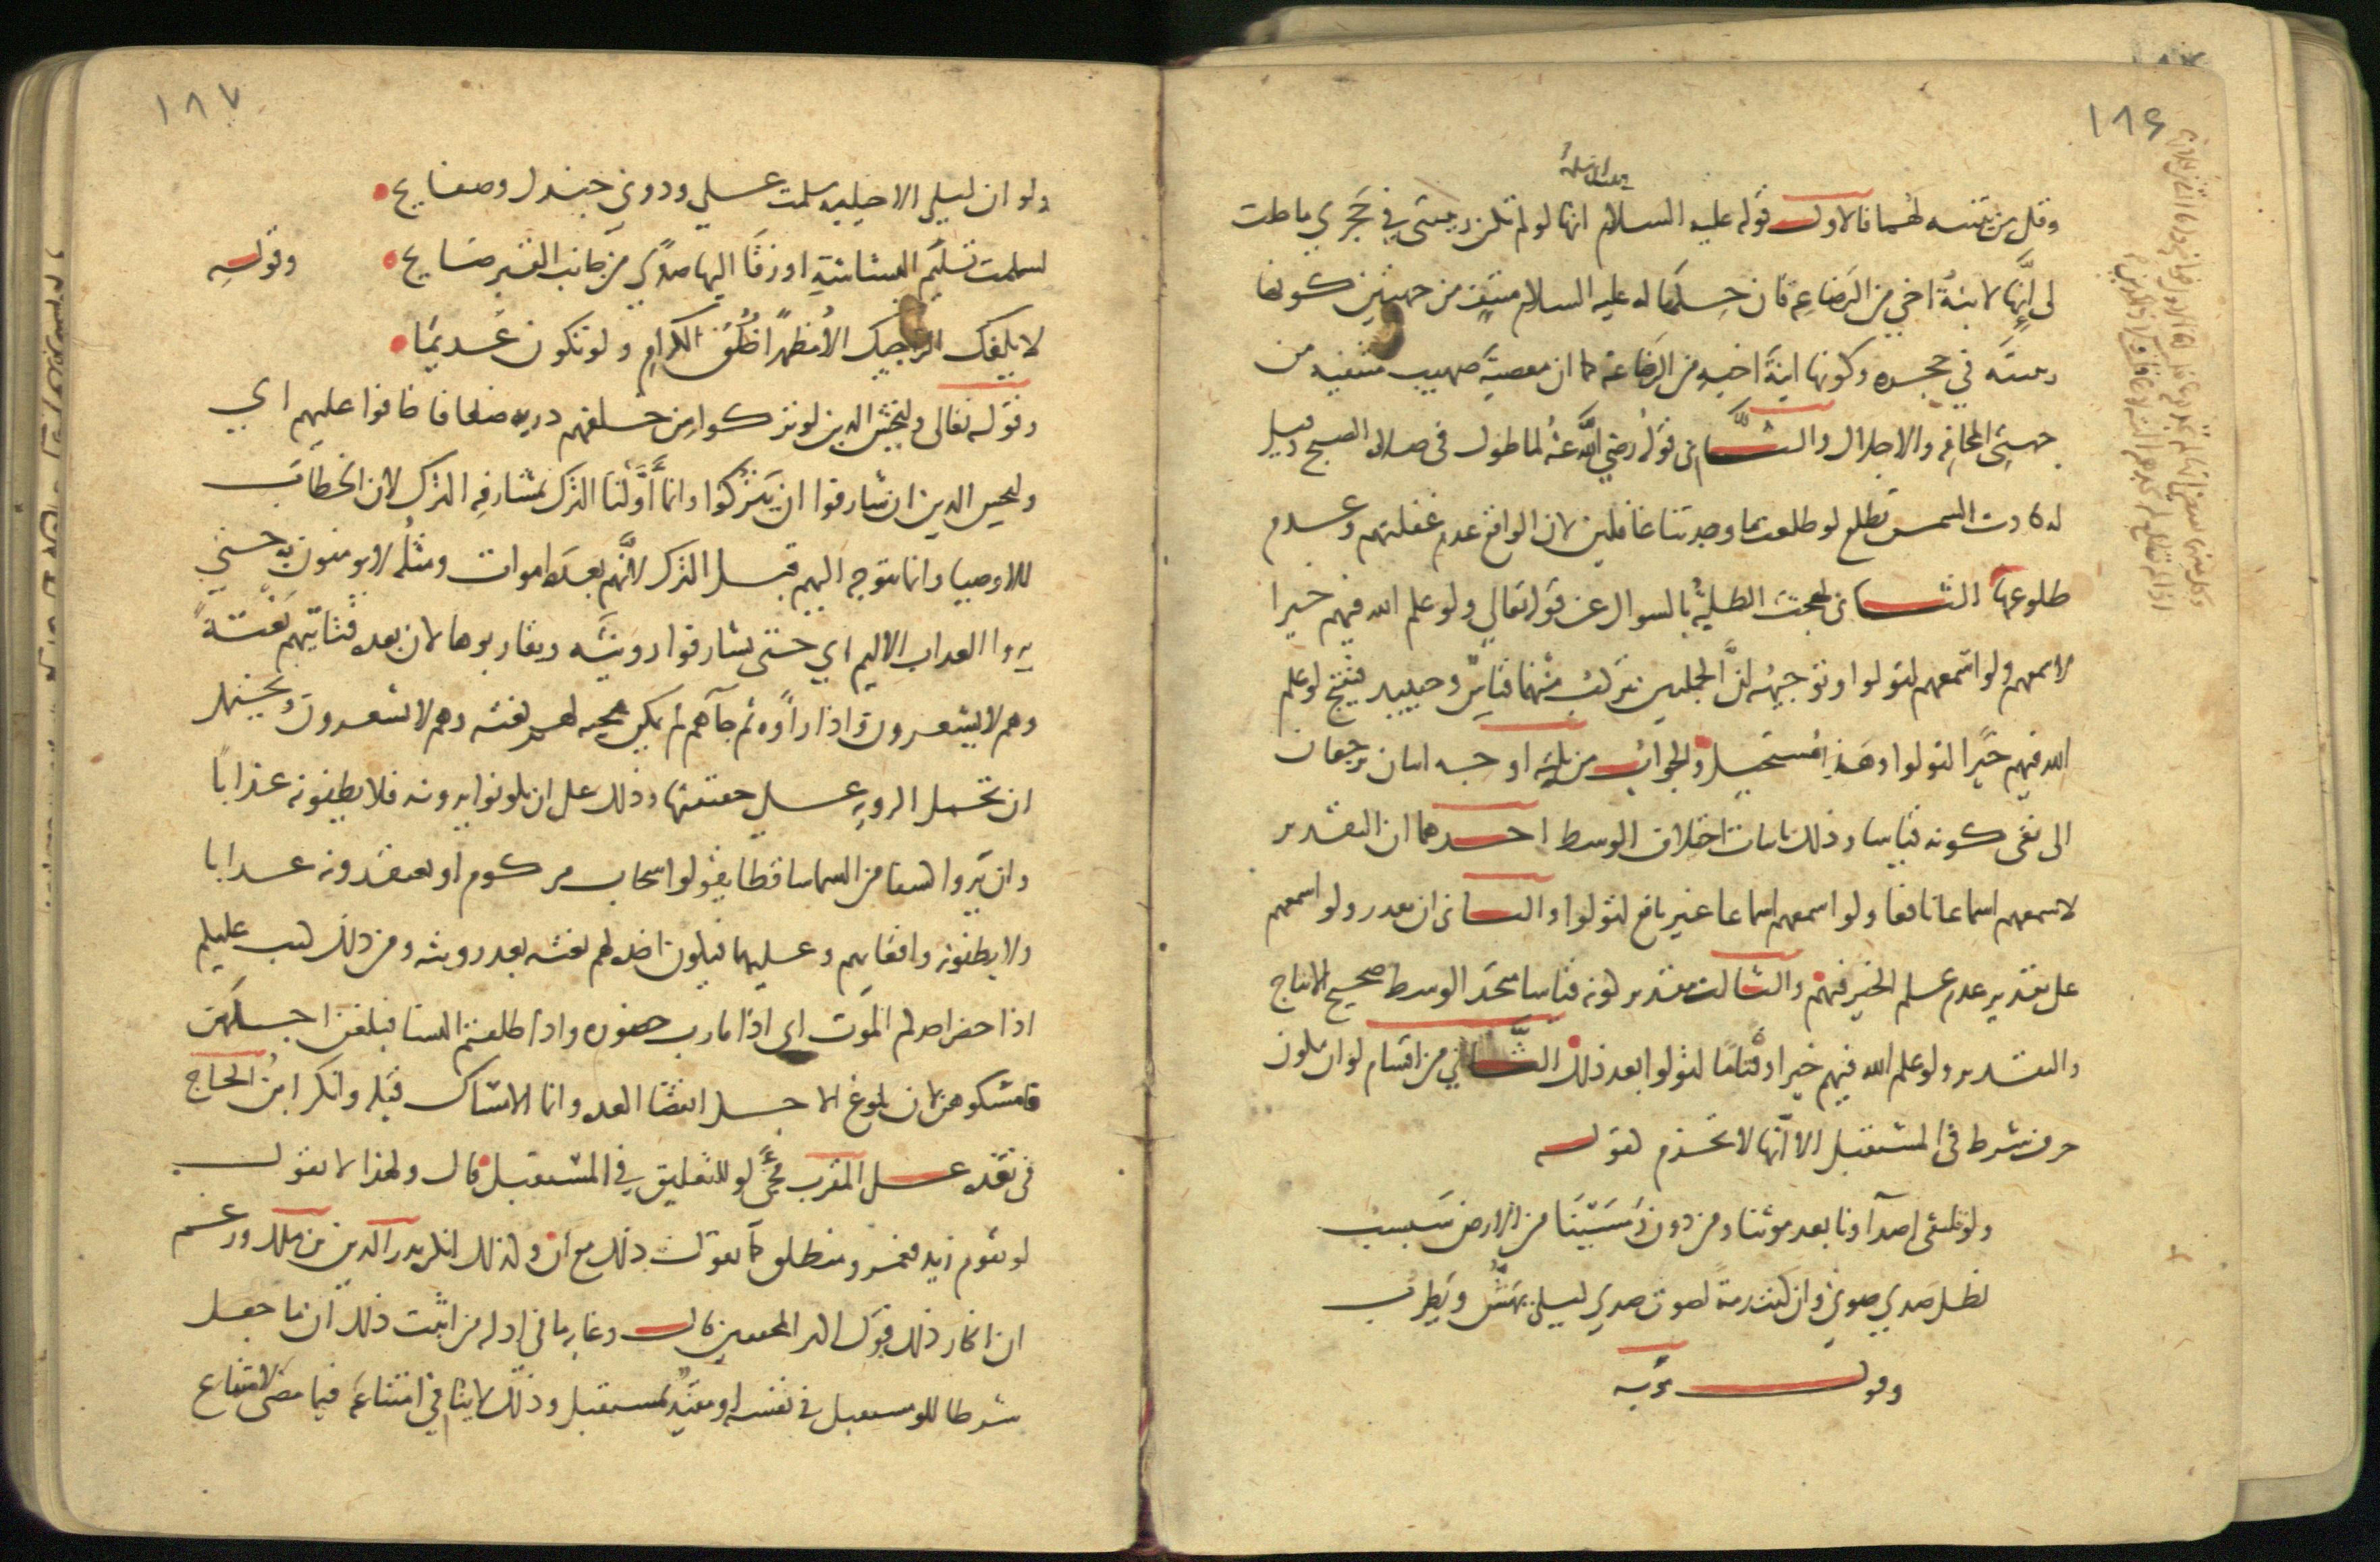 ١٨٦
وقل من يتنبه لهما فالاول قوله عليه السلام انها لو لم تكن ربيبتى في حجري ما حلت
لى إنها لابنة اخي من الرضاعة فان حلها له عليه السلام منتف من جهتين كونها
ربيبته في حجره وكونها ابنة اخيه من الرضاعة كما ان معصية صهيب منتفيه من
جهتى المخافه والاجلال والثانى قوله رضي الله عنه لما طول فى صلاة الصبح وقيل
له كادت الشمس تطلع لو طلعت ما وجدتنا غافلين لان الواقع عدم غفلتهم وعدم
طلوعها الثانى لهجت الطلبة بالسوال عن قوله تعالي ولو علم الله فيهم خيرا
لاسمعهم ولو اسمعهم لتولوا وتوجيهه ان الجملتين تتركب منهما قياس وحينيد فينتج لو علم
الله فيهم خيرا لتولوا وهذا مستحيل والجواب من ثلثه اوجه اثنان يرجعان
الى نفى كونه قياسا وذلك باثبات اختلاف الوسط احدهما ان التقدير
لاسمعهم اسماعا نافعا ولو اسمعهم اسماعا غير نافع لتولوا والثانى ان يقدر ولو اسمعهم
على تقدير عدم علم الخير فيهم والثالث بتقدير كونه قياسا متحد الوسط صحيح الانتاج
والتقدير ولو علم الله فيهم خيرا وقتاما لتولوا بعد ذلك الثاني من اقسام لو ان تكون
حرف شرط فى المستقبل الا انها لا تجزم كقوله
ولو تلتقى اصداونا بعد موتنا ومن دون رمسينا من الارض سبسب
لظل صدي صوتي وان كنت رمة لصوت صدي ليلى يهش ويطرب
وقول توبه
١٨٧
ولو ان ليلى الاخيليه سلمت علي ودوني جندل وصفايح
لسلمت تسليم البشاشة او زقا اليها صدى من جانب القبر صايح وقوله
لا يلفك الراجيك الا مظهرا خلق الكرام ولو تكون عديما
وقوله تعالى وليخش الدين لو تركوا من خلفهم دريه ضعافا خافوا عليهم اي
وليخش الدين ان شارفوا ان يتركوا وانما أولنا الترك بمشارفه الترك لان الخطاب
للاوصيا وانما يتوجه اليهم قبل الترك لانهم بعده اموات ومثله لا يومنون به حتي
يروا العداب الاليم اي حتى يشارفوا رويته ويقاربوها لان بعده فياتيهم بغتة
وهم لا يشعرون واذا راوه ثم جآهم لم يكن مجيه لهم بغته وهم لا يشعرون ويحتمل
ان تحمل الرويه على حقيقتها وذلك على ان يكونوا يرونه فلا يظنونه عذابا
وان يروا كسفا من السما ساقطا يقولوا سحاب مركوم او يعتقدونه عدابا
ولا يظنونه واقعا بهم وعليهما فيكون اخده لهم بغته بعد رويته ومن دلك كتب عليكم
اذا حضر احدكم الموت اى اذا قارب حضوره واذا طلقتم النسا فبلغن اجلهن
فامسكوهن لان بلوغ الاجل انقضا العده وانما الامساك قبله وانكر ابن الحاج
فى نقده على المقرب مجئ لو للتعليق في المستقبل قال ولهذا لا تقول
لو يقوم زيد فعمرو منطلق كما تقول ذلك مع ان وكذلك انكره بدر الدين بن ملك وزعم
ان انكار ذلك قول اكثر المحققين قال وغايه ما فى ادله من اثبت ذلك ان ما جعل
شرطا للو مستقبل في نفسه او مقيد بمستقبل وذلك لا ينافي امتناعه فيما مضى لامتناع